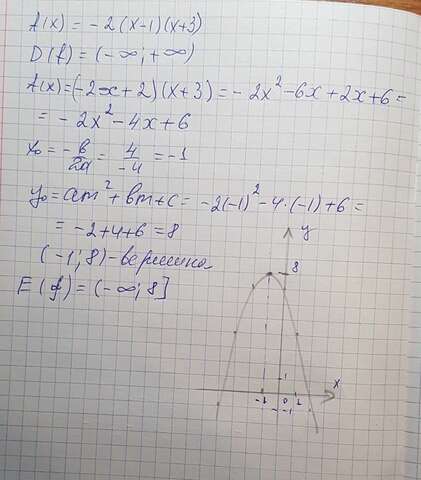 f(x) = -2(x-1)(x+3)
D(f) = (-∞; +∞)
f(x)=(-2x+2)(x+3) = -2x²-6x+2x+6=
= -2x²-4x+6
x₀ = -b/2a = 4/-4 = -1
y₀ = am²+bm+c = -2(-1)²-4·(-1)+6=
= -2+4+6=8
(-1; 8) - вершина
E(f) = (-∞; 8]
y
8
x
1
-1 0 1
-1